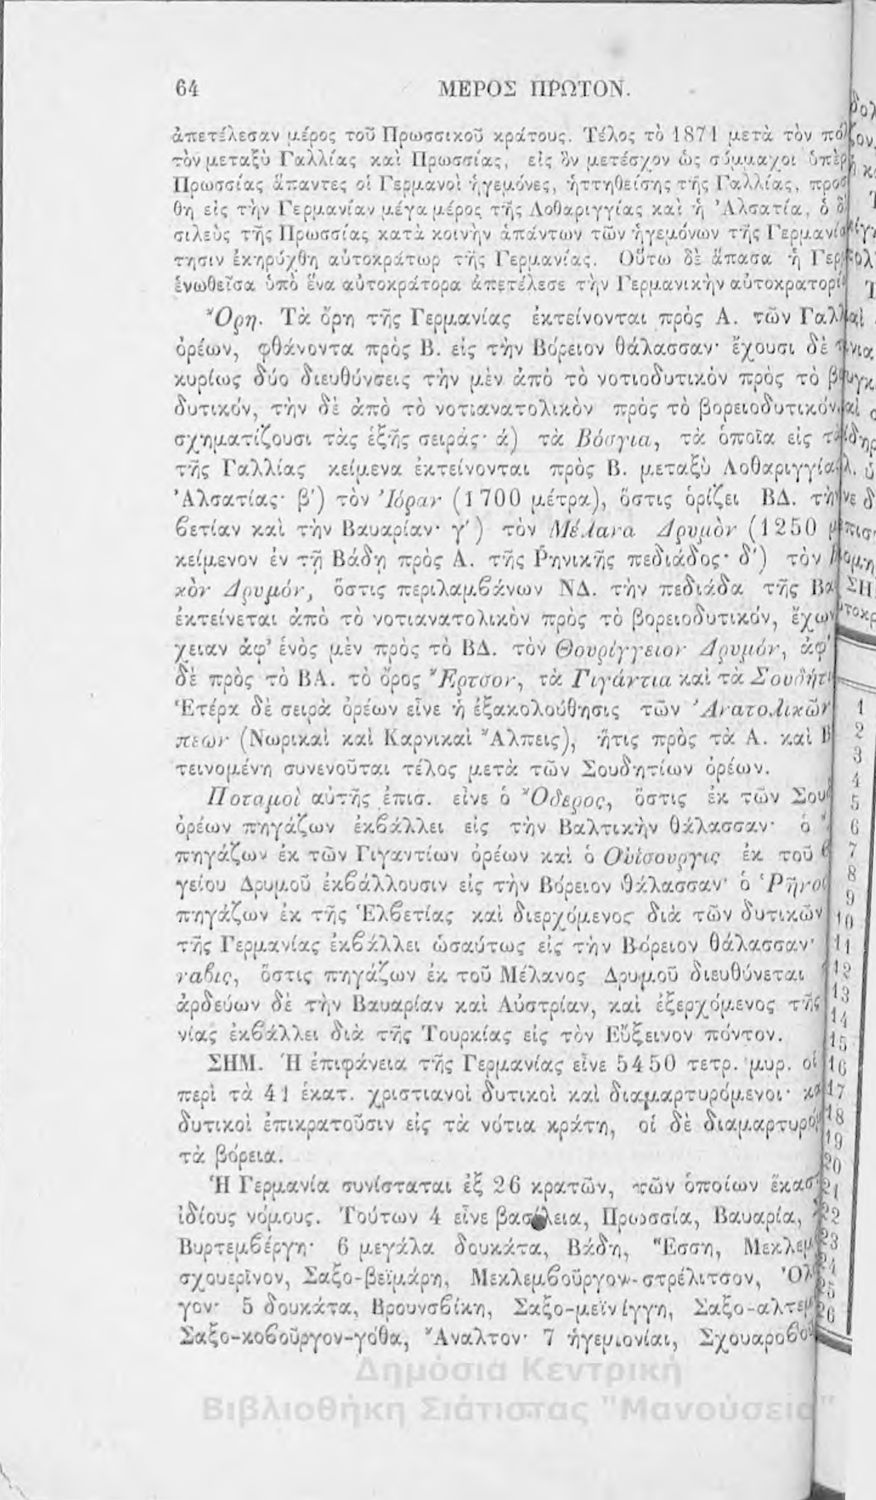 64 ΜΕΡΟΣ ΠΡΩΤΟΝ.
ἀπετέλεσαν μέρος τοῦ Πρωσσικοῦ κράτους. Τέλος τὸ 1871 μετὰ τὸν πό
τὸν μεταξὺ Γαλλίας καὶ Πρωσσίας, εἰς ὃν μετέσχον ὡς σύμμαχοι ὑπὲρ
Πρωσσίας ἅπαντες οἱ Γερμανοὶ ἡγεμόνες, ἡττηθείσης τῆς Γαλλίας, προσ
θη εἰς τὴν Γερμανίαν μέγα μέρος τῆς Λοθαριγγίας καὶ ἡ Ἀλσατία, ὁ δ
σιλεὺς τῆς Πρωσσίας κατὰ κοινὴν ἁπάντων τῶν ἡγεμόνων τῆς Γερμανία
τησιν ἐκηρύχθη αὐτοκράτωρ τῆς Γερμανίας. Οὕτω δὲ ἅπασα ἡ Γερ
ἑνωθεῖσα ὑπὸ ἕνα αὐτοκράτορα ἀπετέλεσε τὴν Γερμανικὴν αὐτοκρατορί
Ὄρη. Τὰ ὄρη τῆς Γερμανίας ἐκτείνονται πρὸς Α. τῶν Γαλ
ὀρέων, φθάνοντα πρὸς Β. εἰς τὴν Βόρειον θάλασσαν· ἔχουσι δὲ
κυρίως δύο διευθύνσεις τὴν μὲν ἀπὸ τὸ νοτιοδυτικὸν πρὸς τὸ β
δυτικόν, τὴν δὲ ἀπὸ τὸ νοτιανατολικὸν πρὸς τὸ βορειοδυτικόν,
σχηματίζουσι τὰς ἑξῆς σειράς· ά) τὰ Βόσγια, τὰ ὁποῖα εἰς τ
τῆς Γαλλίας κείμενα ἐκτείνονται πρὸς Β. μεταξὺ Λοθαριγγία
Ἀλσατίας· β') τὸν Ἰόραν (1700 μέτρα), ὅστις ὁρίζει ΒΔ. τὴν
βετίαν καὶ τὴν Βαυαρίαν· γ') τὸν Μέλανα Δρυμὸν (1250 μ
κείμενον ἐν τῇ Βάδῃ πρὸς Α. τῆς Ῥηνικῆς πεδιάδος· δ') τὸν
κὸν Δρυμόν, ὅστις περιλαμβάνων ΝΔ. τὴν πεδιάδα τῆς Βα
ἐκτείνεται ἀπὸ τὸ νοτιανατολικὸν πρὸς τὸ βορειοδυτικόν, ἔχων
χειαν ἀφ' ἑνὸς μὲν πρὸς τὸ ΒΔ. τὸν Θουρίγγειον Δρυμόν, ἀφ'
δὲ πρὸς τὸ ΒΑ. τὸ ὄρος Ἔρτσον, τὰ Γιγάντια καὶ τὰ Σουδήτι
Ἑτέρα δὲ σειρὰ ὀρέων εἶνε ἡ ἐξακολούθησις τῶν Ἀνατολικῶν
πεων (Νωρικαὶ καὶ Καρνικαὶ Ἄλπεις), ἥτις πρὸς τὰ Α. καὶ Β
τεινομένη συνενοῦται τέλος μετὰ τῶν Σουδητίων ὀρέων.
Ποταμοὶ αὐτῆς ἐπισ. εἶνε ὁ Ὄδερος, ὅστις ἐκ τῶν Σου
ὀρέων πηγάζων ἐκβάλλει εἰς τὴν Βαλτικὴν θάλασσαν· ὁ
πηγάζων ἐκ τῶν Γιγαντίων ὀρέων καὶ ὁ Οὐίσουργις ἐκ τοῦ
γείου Δρυμοῦ ἐκβάλλουσιν εἰς τὴν Βόρειον θάλασσαν· ὁ Ῥῆνος
πηγάζων ἐκ τῆς Ἑλβετίας καὶ διερχόμενος διὰ τῶν δυτικῶν
τῆς Γερμανίας ἐκβάλλει ὡσαύτως εἰς τὴν Βόρειον θάλασσαν·
ναβις, ὅστις πηγάζων ἐκ τοῦ Μέλανος Δρυμοῦ διευθύνεται
ἀρδεύων δὲ τὴν Βαυαρίαν καὶ Αὐστρίαν, καὶ ἐξερχόμενος τῆς
νίας ἐκβάλλει διὰ τῆς Τουρκίας εἰς τὸν Εὔξεινον πόντον.
ΣΗΜ. Ἡ ἐπιφάνεια τῆς Γερμανίας εἶνε 5450 τετρ. μυρ. οἱ
περὶ τὰ 41 ἑκατ. χριστιανοὶ δυτικοὶ καὶ διαμαρτυρόμενοι·
δυτικοὶ ἐπικρατοῦσιν εἰς τὰ νότια κράτη, οἱ δὲ διαμαρτυρό
τὰ βόρεια.
Ἡ Γερμανία συνίσταται ἐξ 26 κρατῶν, τῶν ὁποίων ἕκασ
ἰδίους νόμους. Τούτων 4 εἶνε βασίλεια, Πρωσσία, Βαυαρία,
Βυρτεμβέργη· 6 μεγάλα δουκάτα, Βάδη, Ἔσση, Μεκλεμ
σχουερῖνον, Σαξο-βεϊμάρη, Μεκλεμβοῦργον-στρέλιτσον, Ὀλ
γον· 5 δουκάτα, Βρουνσβίκη, Σαξο-μεϊνίγγη, Σαξο-αλτεμ
Σαξο-κοβοῦργον-γόθα, Ἄναλτον· 7 ἡγεμονίαι, Σχουαροβού
Δημόσια Κεντρική
Βιβλιοθήκη Σιάτιστας "Μανούσεια"
1
2
3
4
5
6
7
8
9
10
11
12
13
14
15
16
17
18
19
20
21
22
23
24
25
26